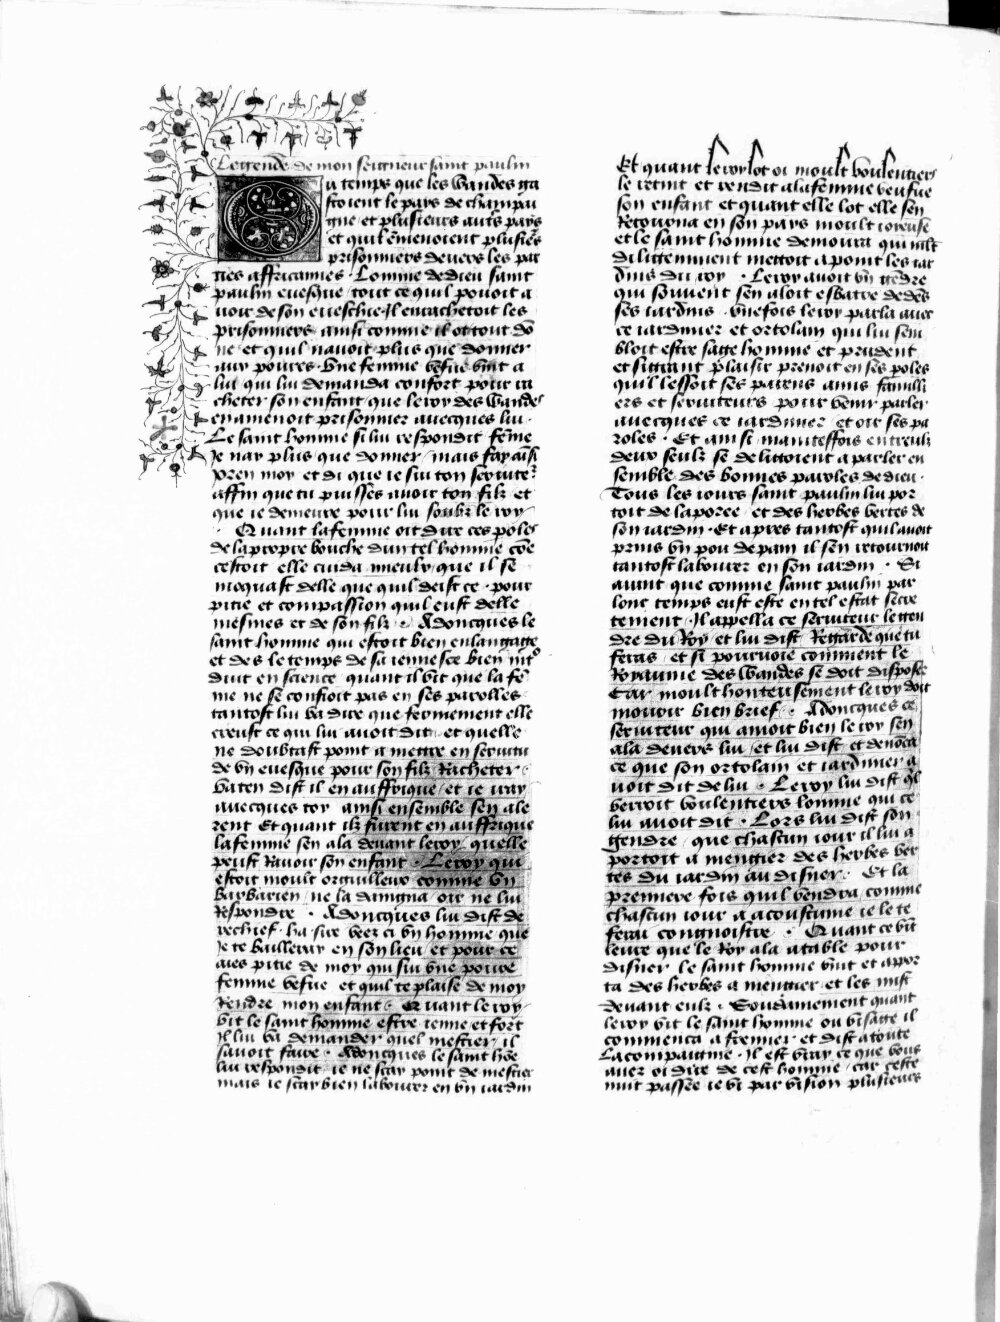 Legende de mon seigneur saint paulin
u temps que les wandes ga
stoient le pays de champai
gne et plusieurs auts pays
et quil emenoient plusieɾs
prisonniers deuers les par
ties affricaines . Lomme de dieu saint
paulin euesque tout ce quil pouoit a
uoir de son eueschie . Il en rachetoit les
prisonniers ainsi comme il ot tout do
ne et quil nauoit plus que donner
aux poures . Une femme vefue vint a
lui qui lui demanda confort pour ra
cheter son enfant que le roy des wandes
en amenoit prisonnier auecques lui .
Le saint homme si lui respondit feme
Je nay plus que donner mais fay ainsi
pren moy et di que ie sui ton seruite
affin que tu puisses auoir ton filz et
que ie demeure pour lui soubz le roy
. Quant la femme oit dire ces poles
de la propre bouche dun tel homme coe
cestoit elle cuida mieulx que il se
mequast delle que quil deist ce . pour
pitie et compassion quil eust delle
mesmes et de son filz . Adoncques le
saint homme qui estoit bien enlangage
et des le temps de sa iennesce bien int
duit en science quant il vit que la fe
me ne se confioit pas en ses parolles
tantost lui va dire que fermement elle
creust ce qui lui auoit dit et quelle
ne doubtast point a mettre en seruitu
de vn euesque pour son filz Racheter .
va ten dist il en auffrique et ie iray
auecques toy ainsi ensemble sen ale
rent Et quant ilz furent en auffrique
la femme sen ala deuant le roy quelle
peust Rauoir son enfant . Le roy qui
estoit moult orguilleux comme vn
barbarien ne la daingna oir ne lui
Respondre . Adoncques lui dist de
rechief . ha sire veez ci vn homme que
Je te bailleray en son lieu et pour ce
aies pitie de moy qui sui vne poure
femme vefue et quil te plaise de moy
Rendre mon enfant . Quant le roy
vit le saint homme estre ienne et fort
Il lui va demander quel mestier il
sauoit faire . Adoncques le saint hoe
lui respondit ie ne scay point de mestier
mais ie scay bien labourer en vn iardin
Et quant le roy lot oi moult voulentiers
le retint et rendit a la femme veufue
son enfant et quant elle lot elle sen
Retourna en son pays moult ioieuse
et le saint homme demoura qui mlt
diligemment mettoit a point les iar
dins du roy . Le roy auoit vn gedre
qui souuent sen aloit esbatre dedes
ses iardins . vne fois le roy parla auec
ce iardinier et ortolain qui lui sem
bloit estre sage homme et prudent
et si grant plaisir prenoit en ses poles
quil lessoit ses parens amis famili
ers et seruiteurs pour venir parler
auecques ce iardinier et oir ses pa
roles . Et ainsi maintesfois entreulx
deux seulz se delittoient a parler en
semble des bonnes paroles de dieu .
Tous les iours saint paulin lui por
toit de la poree et des herbes vertes de
son iardin . Et apres tantost quil auoit
prins vn pou de pain il sen retournoit
tantost labourer en son iardin . Si
auint que comme saint paulin par
lonc temps eust este en tel estat secre
tement . Il appella ce seruiteur le gen
dre du Roy et lui dist Regarde que tu
feras et si pouruoie comment le
Royaume des wandes se doit disposer
Car moult honteusement le roy doit
mourir bien brief . Adoncques ce
seruiteur qui amoit bien le roy sen
ala deuers lui et lui dist et denonca
ce que son ortolain et iardinier a
uoit dit de lui . Le roy lui dist ql
verroit voulentiers lomme qui ce
lui auoit dit . Lors lui dist son
gendre que chascun iour il lui a
portoit a mengier des herbes ver
tes du iardin au disner . Et la
premiere fois quil vendra comme
chascun iour a acoustume ie le te
feray congnoistre . Quant ce vit
leure que le Roy ala a table pour
disner le saint homme vint et appor
ta des herbes a mengier et les mist
deuant eulx . Soudainement quant
le roy vit le saint homme ou visage il
commenca a fremir et dist a toute
La compaignie . Il est vray ce que vous
auez oi dire de cest homme car ceste
nuit passee ie vi par vision plusieurs